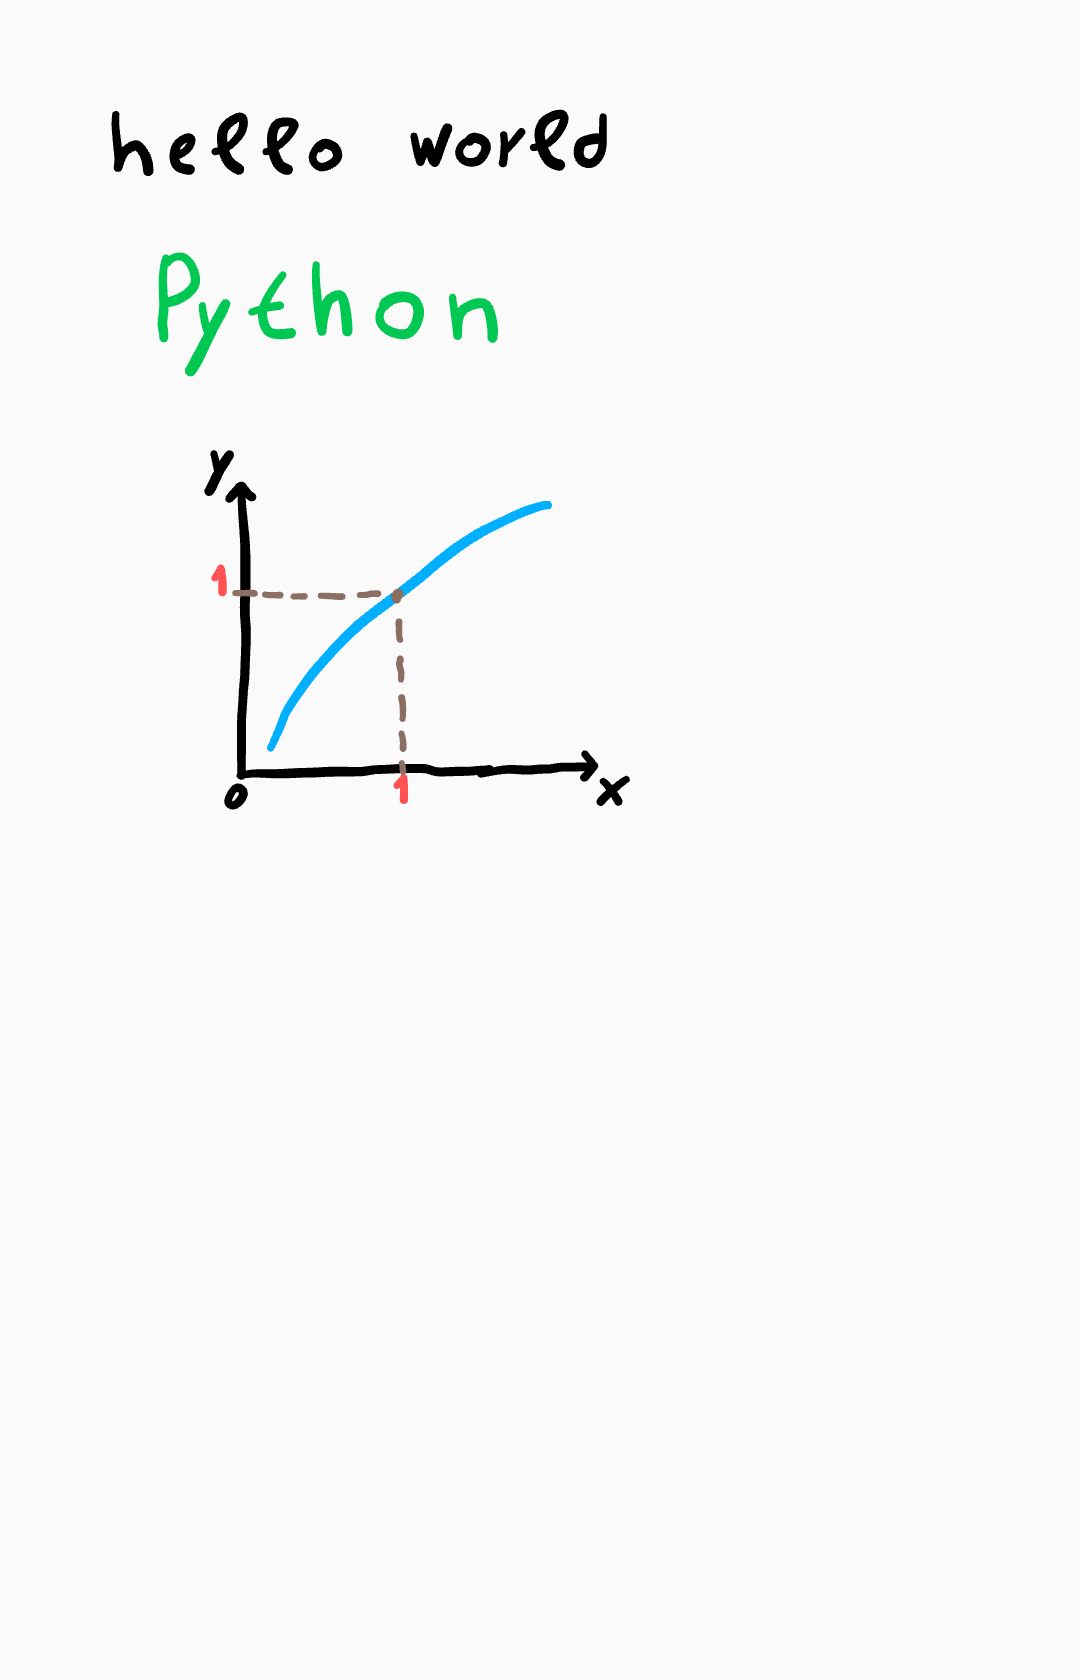 hello world
Python
y
1
0 1 x